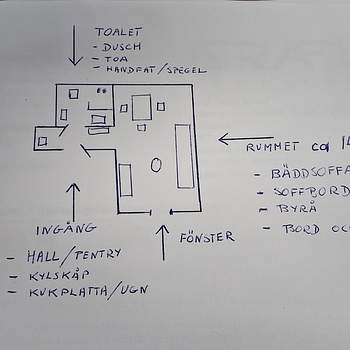 TOALET
- DUSCH
- TOA
- HANDFAT/SPEGEL
RUMMET ca 14
- BÄDDSOFFA
- SOFFBORD
- BYRÅ
- BORD OCH
INGÅNG
- HALL/PENTRY
- KYLSKÅP
- KVKPLATTA/UGN
FÖNSTER